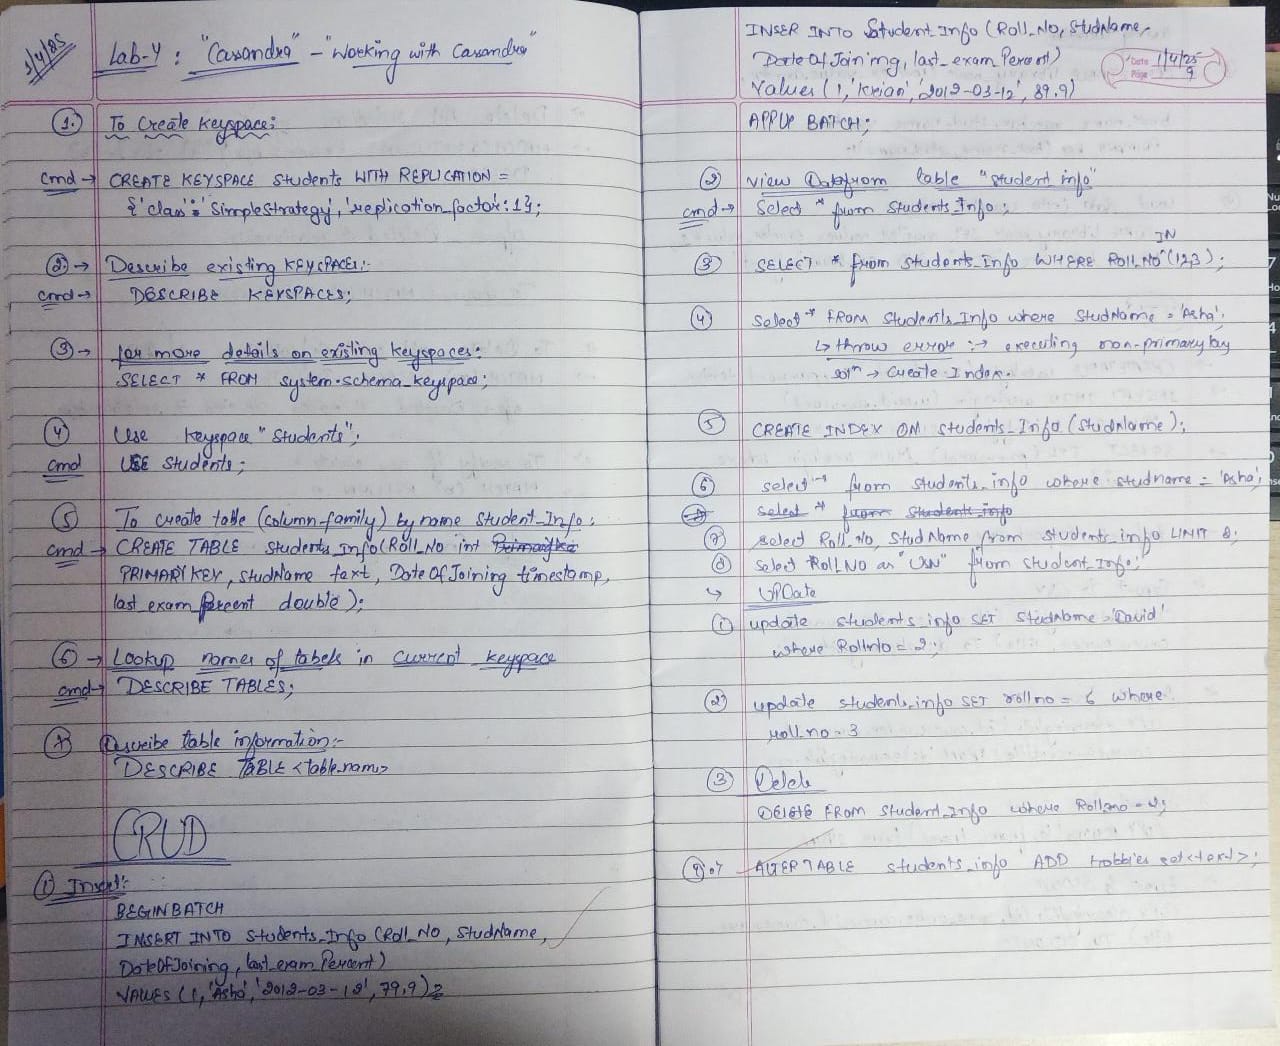 1/4/25
Lab-4 : "Cassandra" - "Working with Cassandra"
1. To Create Keyspace:
cmd → CREATE KEYSPACE Students WITH REPLICATION =
{'class': 'SimpleStrategy', 'replication_factor': 1};
2. → Describe existing KEYSPACES:-
cmd → DESCRIBE KEYSPACES;
3 → for more details on existing keyspaces:
SELECT * FROM system.schema_keyspace;
4 Use keyspace "Students";
cmd USE Students;
5 To create table (column-family) by name Student_Info:
cmd → CREATE TABLE Students_info(Roll_No int
PRIMARY KEY, StudName text, DateOfJoining timestamp,
last_exam_Percent double);
6 → Lookup names of tabels in current keyspace
cmd → DESCRIBE TABLES;
7 Describe table information:-
DESCRIBE TABLE <table.nam>
CRUD
1 Insert:
BEGIN BATCH
INSERT INTO Students_Info (Roll_No, StudName,
DateOfJoining, last_exam_Percent)
VALUES (1, 'Asha', '2012-03-12', 79.9)
INSER INTO Student_Info (Roll_No, StudName,
DateOfJoining, last_exam Percent)
Date 1/4/25
Page 9
Values (1, 'Kiran', '2012-03-12', 89.9)
APPLY BATCH;
2 View Data from table "student_info"
cmd → Select * from Students_Info;
IN
3 SELECT * from Students_Info WHERE Roll_No (1,2,3);
4 Select * FROM Students_Info where StudName = 'Asha'.
↳ throw error :→ executing non-primary key
sol^n → Create Index.
5 CREATE INDEX ON Students_Info (StudName);
6 select * from students_info where studname = 'Asha';
Select * from Students info
7 select Roll_No, StudName from students_info LIMIT 2;
8 select Roll_NO as "USN" from student_Info;
↳ UPDate
1 update students_info SET StudName = 'David'
where RollNo = 2;
2 update students_info SET rollno = 6 where
roll_no = 3
3 Delete
DElete FROM Student_Info where Rollno = 2;
ALTER TABLE students_info ADD hobbies set<text>;